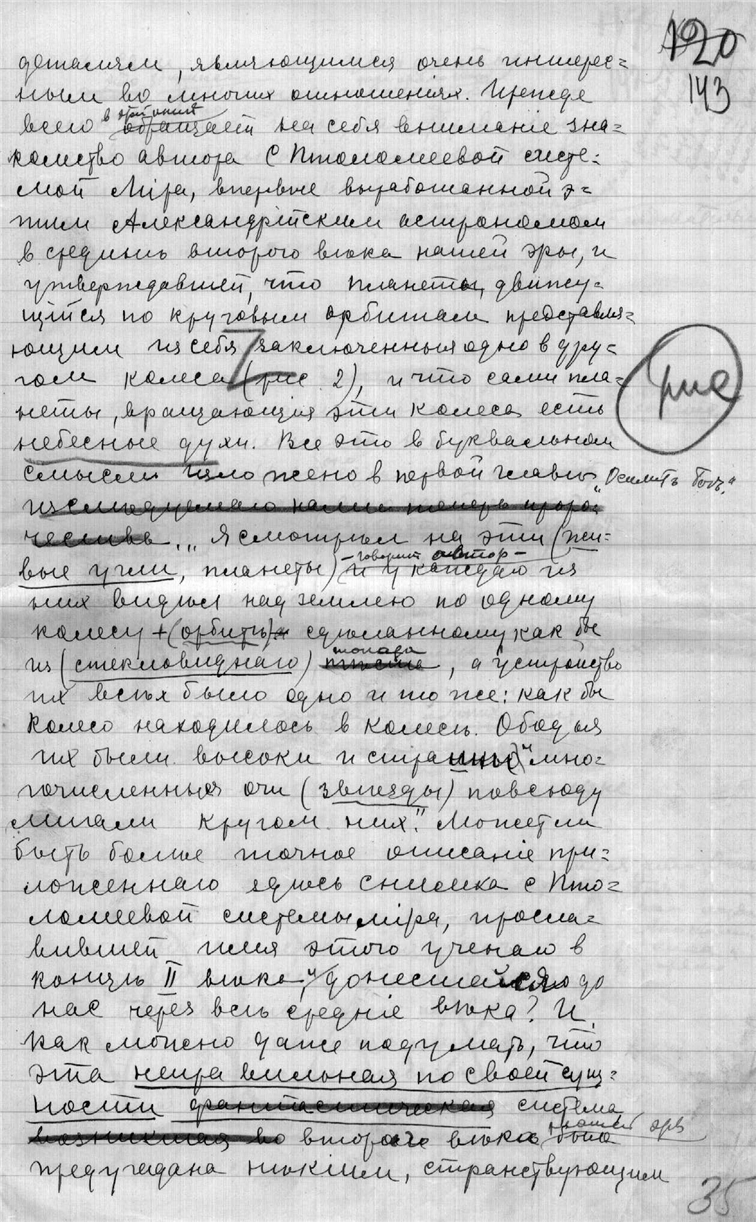 120
143
деталям, являющимся очень интерес=
ным во многих отношеніях. Прежде
всего в этом описаніи обращает на себя вниманіе зна=
комство автора с Птоломеевой систе=
мой Міра, впервые выработанной э=
тим Александрійским астрономом
в срединѣ второго вѣка нашей эры, и
утверждавшей, что планеты, движу=
щіяся по круговым орбитам представля=
ющим из себя заключенныя одно в дру=
гом колеса (рис. 2), и что сами пла=
неты, вращающія эти колеса есть
небесные духи. Все это в буквальном
смыслѣ изложено в первой главѣ „Осилитъ Богъ".
рис
изслѣдуемаго нами теперь проро=
чества. „Я смотрѣл на эти (жи=
вые угли, планеты) – говорит автор – и у каждаго из
них видѣл над землею по одному
колесу + (орбитѣ) сдѣланному как бы
из (стекловиднаго) топаза, а устройство
их всѣх было одно и то же: как бы
колесо находилось в колесѣ. Ободья
их были высоки и страшны, мно=
гочисленныя очи (звѣзды) повсюду
мигали кругом них." Может ли
быть болѣе точное описаніе при=
ложеннаго здѣсь снимка с Пто=
ломеевой системы міра, просла=
вившей имя этого ученаго в
концѣ II вѣка, и донесшейся до
нас через всѣ средніе вѣка? И
как можно даже подумать, что
эта неправильная по своей сущ=
ности фантастическая система
возникшая во второго вѣка нашей эры была
предугадана нѣкіим, странствующим
35